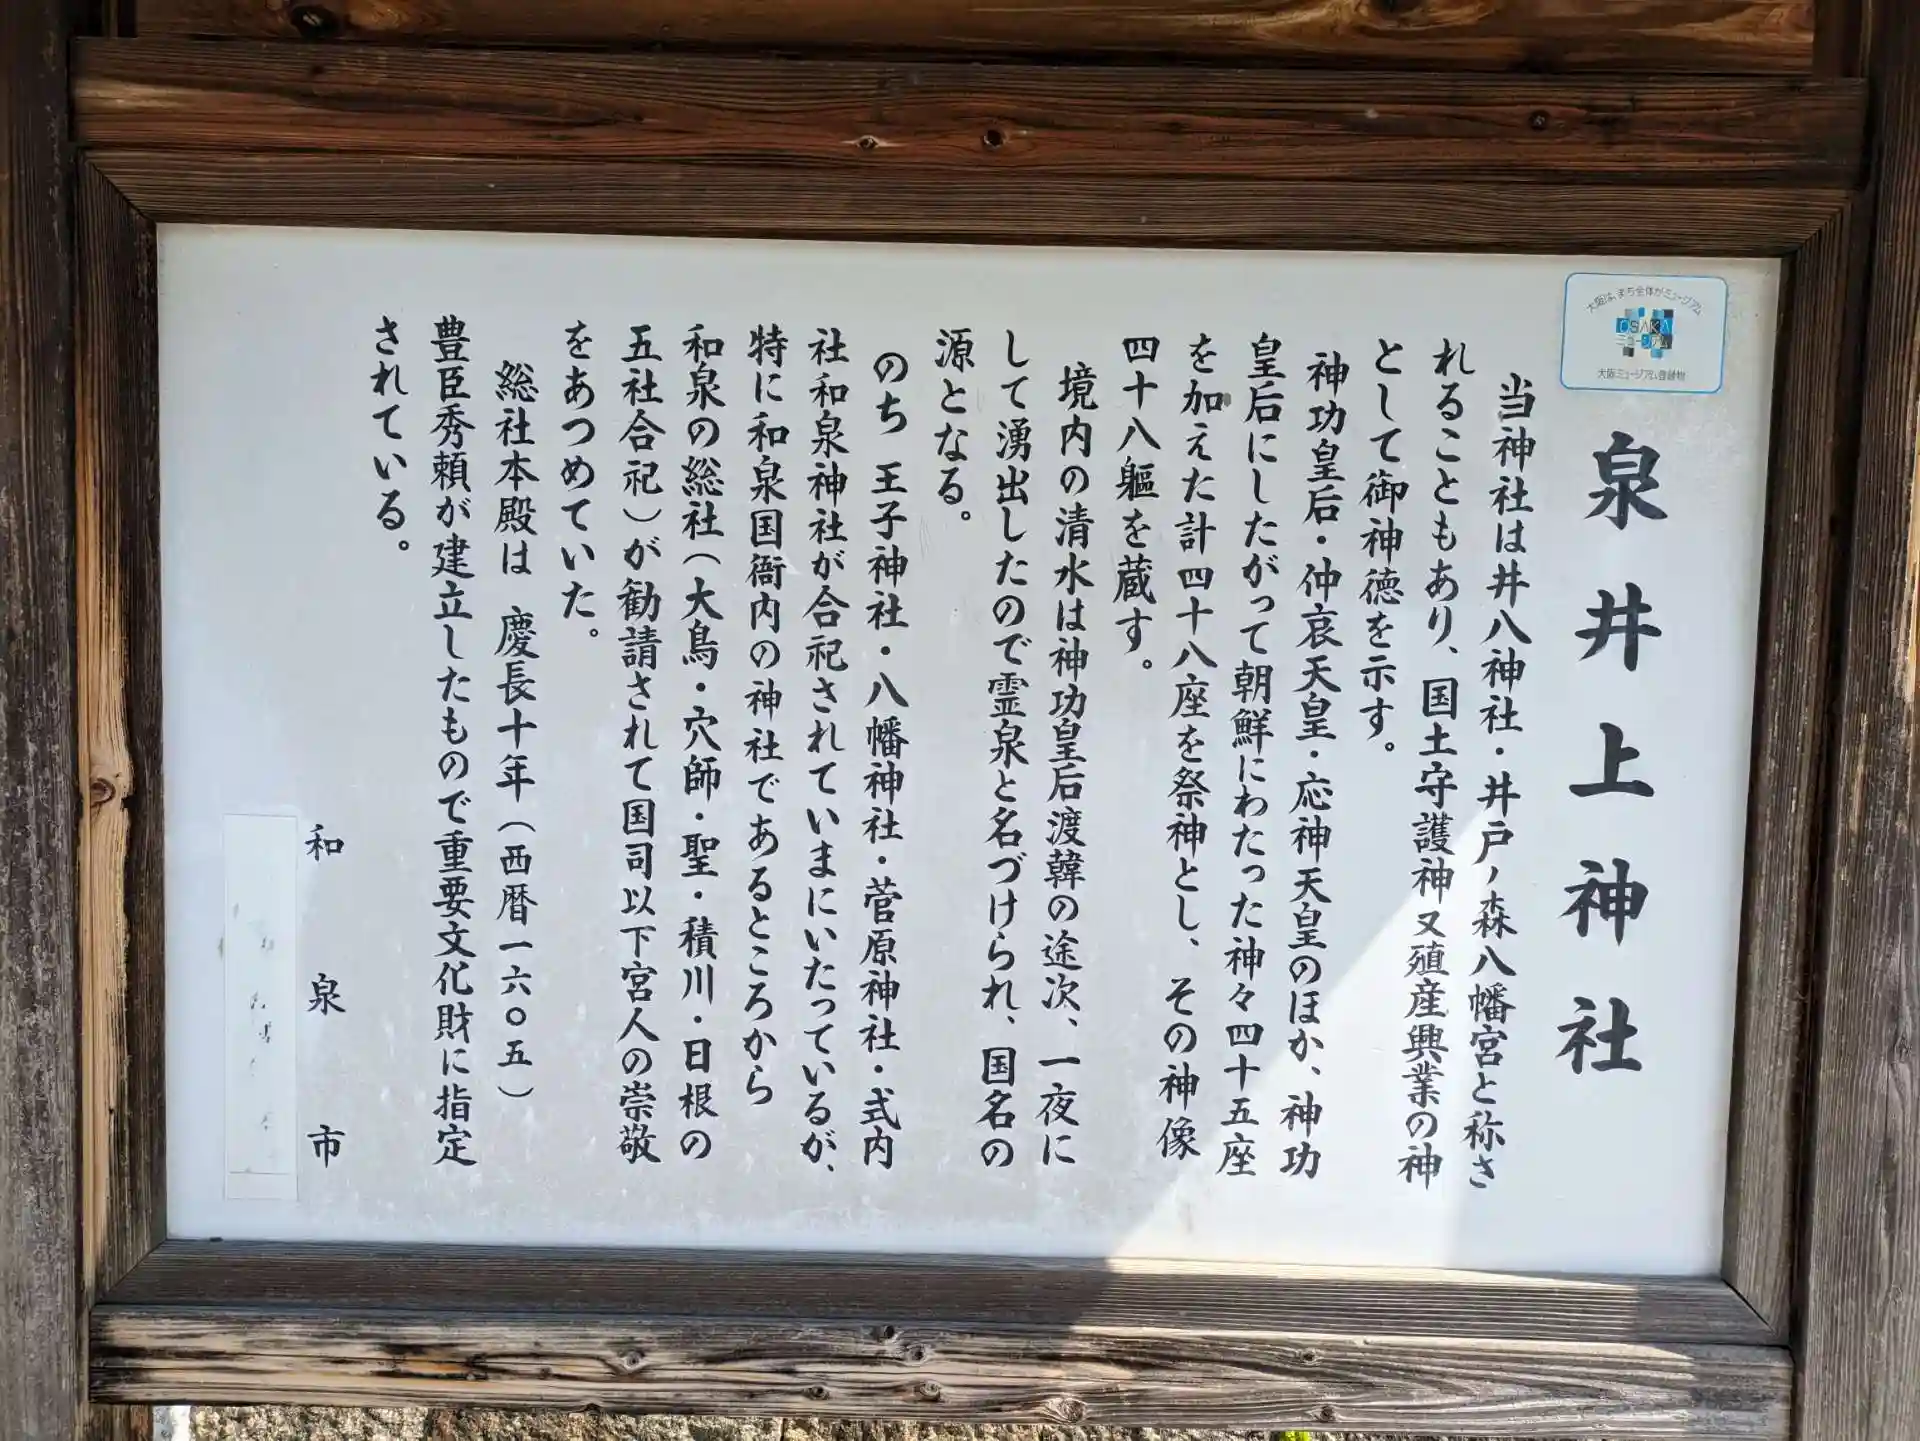 泉井上神社
当神社は井八神社・井戸ノ森八幡宮と称さ
れることもあり、国土守護神又殖産興業の神
として御神徳を示す。
神功皇后・仲哀天皇・応神天皇のほか、神功
皇后にしたがって朝鮮にわたった神々四十五座
を加えた計四十八座を祭神とし、その神像
四十八軀を蔵す。
境内の清水は神功皇后渡韓の途次、一夜に
して湧出したので霊泉と名づけられ、国名の
源となる。
のち 王子神社・八幡神社・菅原神社・式内
社和泉神社が合祀されていまにいたっているが、
特に和泉国衙内の神社であるところから
和泉の総社(大鳥・穴師・聖・積川・日根の
五社合祀)が勧請されて国司以下宮人の崇敬
をあつめていた。
総社本殿は 慶長十年(西暦一六〇五)
豊臣秀頼が建立したもので重要文化財に指定
されている。
和泉市
大阪は、まち全体がミュージアム
OSAKA
ミュージアム
大阪ミュージアム登録物